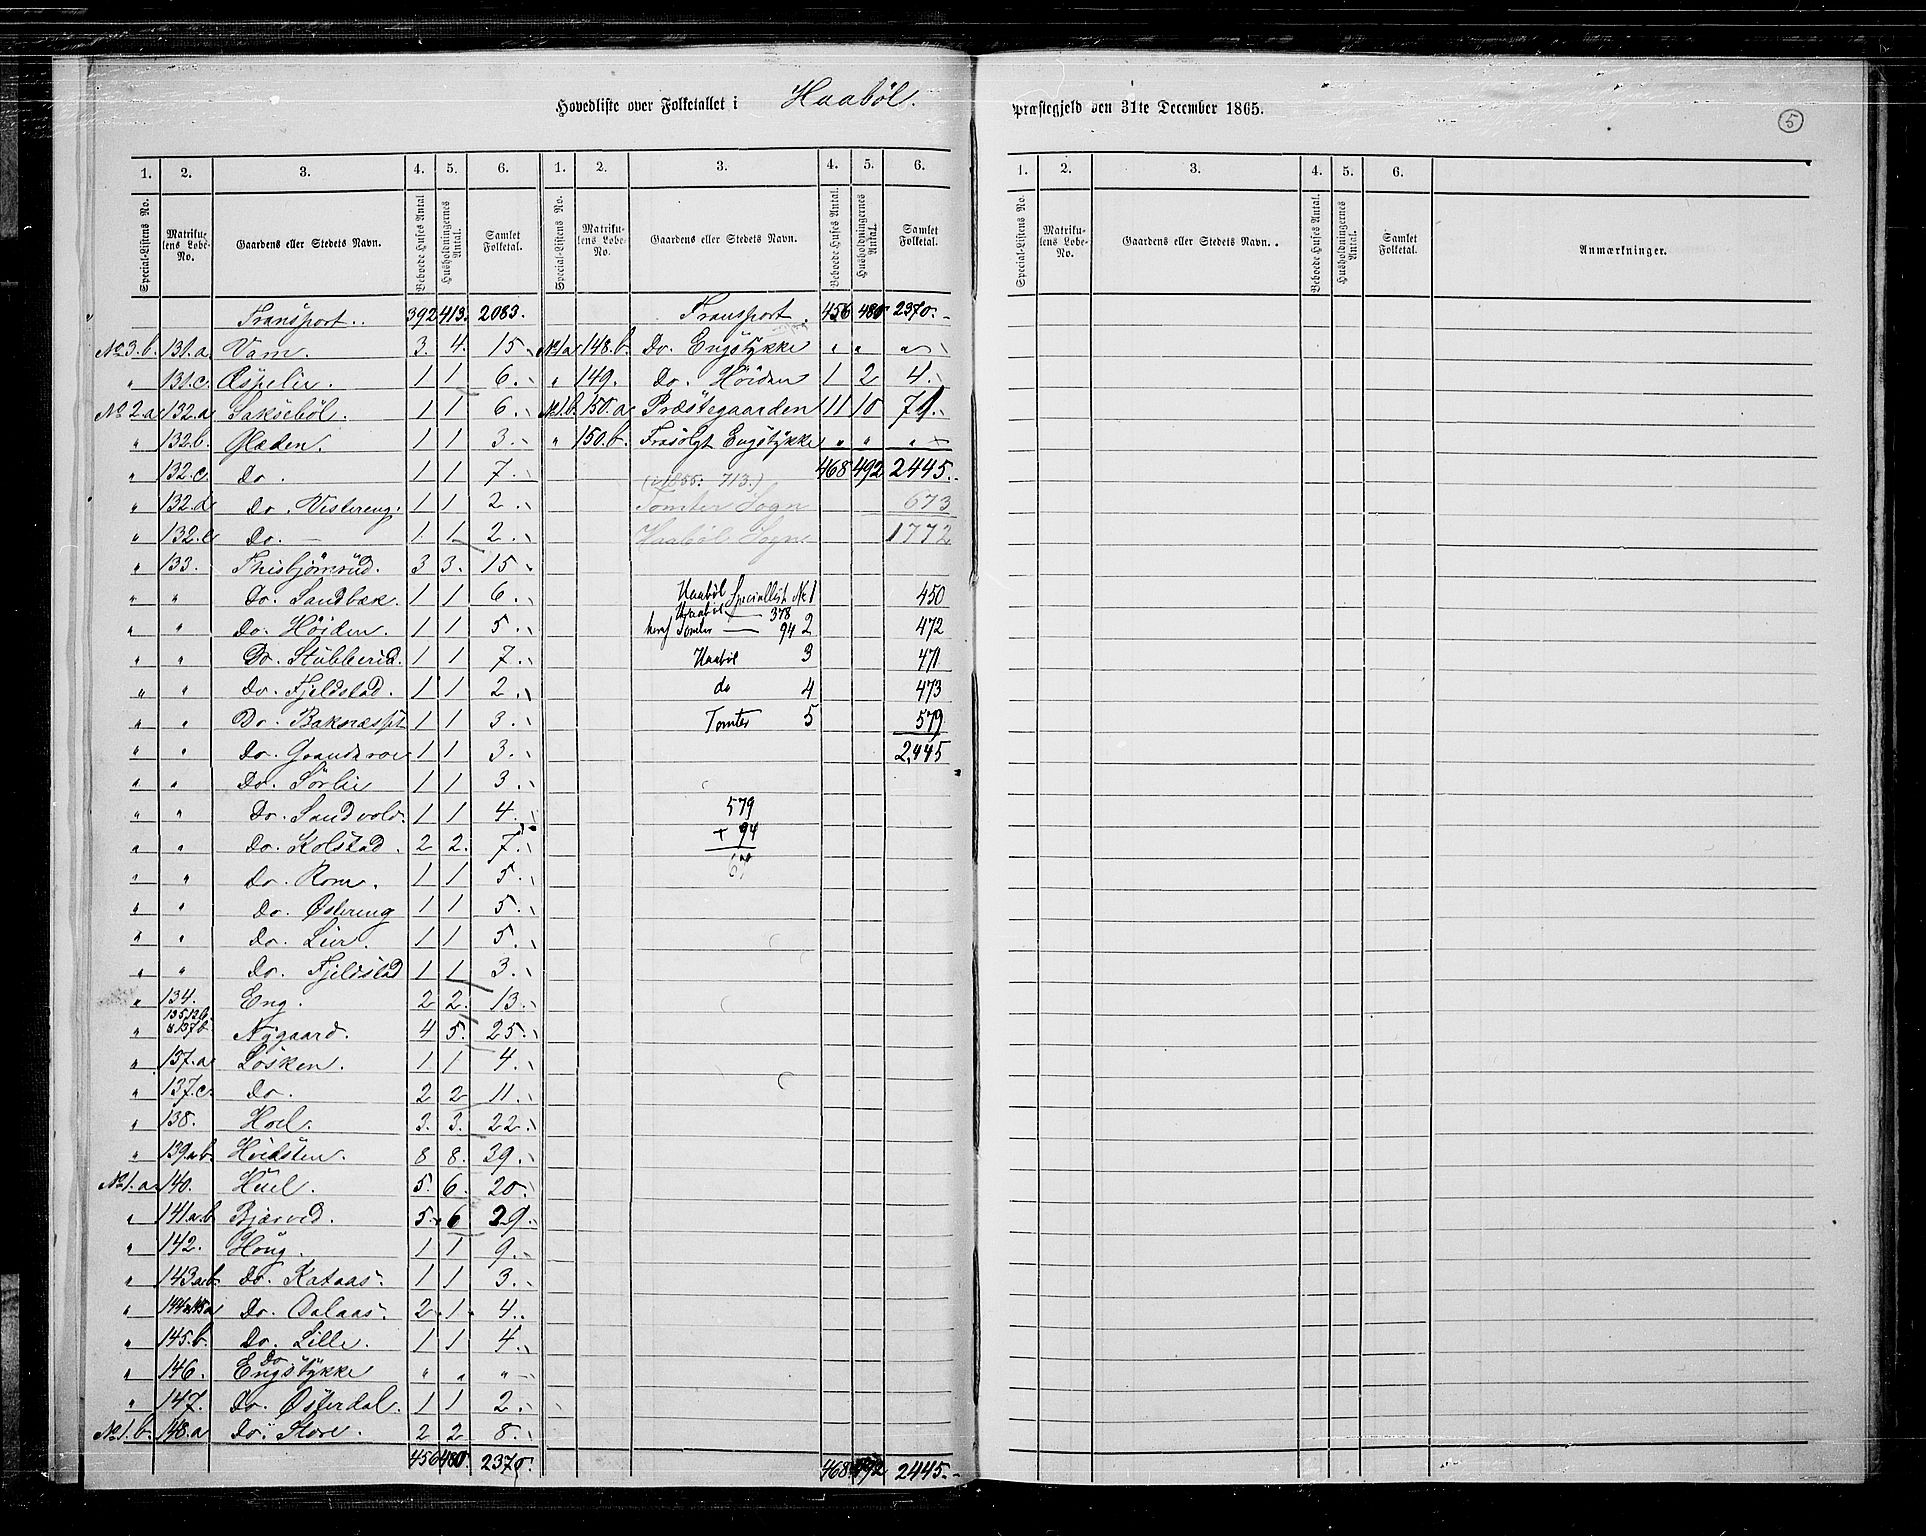 Hovedliste over Folketallet i Haabøl. Præstegjeld den 31te December 1865.
5
1. 2. 3. 4. 5. 6. 1. 2. 3. 4. 5. 6. 1. 2. 3. 4. 5. 6.
Special-Listens No. Matrikulens Løbe-No. Gaardens eller Stedets Navn. Beboede Huses Antal Husholdningernes Antal. Samlet Folketal. Special-Listens No. Matrikulens Løbe-No. Gaardens eller Stedets Navn. Beboede Huses Antal Husholdningernes Antal. Samlet Folketal. Special-Listens No. Matrikulens Løbe-No. Gaardens eller Stedets Navn. Beboede Huses Antal. Husholdningernes Antal. Samlet Folketal. Anmærkninger.
Transport. 392 413. 2083.
No 3.b. 131.a Vam. 3. 4. 15
" 131.c. Æspelie. 1 1 6.
No 2.a 132.a Saksebøl. 1 1 6.
" 132.b. Glæden. 1 1 3.
" 132.c. do. 1 1 7.
" 132.d. do. Vestereng. 1 1 2.
" 132.e do. — 1 1 2.
" 133. Thisbjørnrud. 3 3. 15
" " Do. Sandbæk. 1 1 6.
" " Do. Høiden. 1 1 5.
" " Do. Stubberud. 1 1 7.
" " Do. Fjeldstad. 1 1 2.
" " Do. 1 1 3.
" " Do. 1 1 3.
" " Do. Sørlie 1 1 3.
" " Do. Sandvold. 1 1 4.
" " Do. Kolstad. 2 2. 7.
" " Do. Rom. 1 1 5.
" " Do. Østereng 1 1 5.
" " Do. Lier. 1 1 5.
" " Do. Fjeldstad 1 1 3.
" 134. Eng. 2 2. 13.
" 135,136. & 137b. Nygaard. 4 5. 25.
" 137.a Løsken. 1 1 4.
" 137.c. Do. 2 2 11.
" 138. Hoel. 3. 3. 22.
" 139ab. Hvidsten. 8 8. 39.
No 1.a 140. Huel. 5. 6. 20.
" 141a.b Bjærved. 5. 6 29.
" 142. Houg. 1 1 9.
" 143ab. Do. Kataas. 1 1 3.
" 144&145a Do. Dalaas. 2 1 4.
" 145.b. Do. Lille. 1 1 4.
" 146. Do. Engstykke " " "
" 147. Do. Østerdal. 1 1 2.
No 1.b. 148.a Do. Store. 2 2 8.
456 480. 2370.
Transport. 456 480 2370.
No 1a 148.b. Do. Engstykke " " "
" 149. Do. Høiden 1 2 4.
No 1.b. 150.a Præstegaarden 11 10 71.
" 150.b. Frasolgt Engstykke " " "
468 492 2445.
(i 1855: 713.)
Tomter Sogn 673
Haabøl Sogn 1772
Haabøl Speciallist No 1 450
Haabøl — 378
heraf Tomter — 94 2 472
Haabøl 3 471
do 4 473
Tomter 5 579
2,445
579
+ 94
67
468 492 2445.